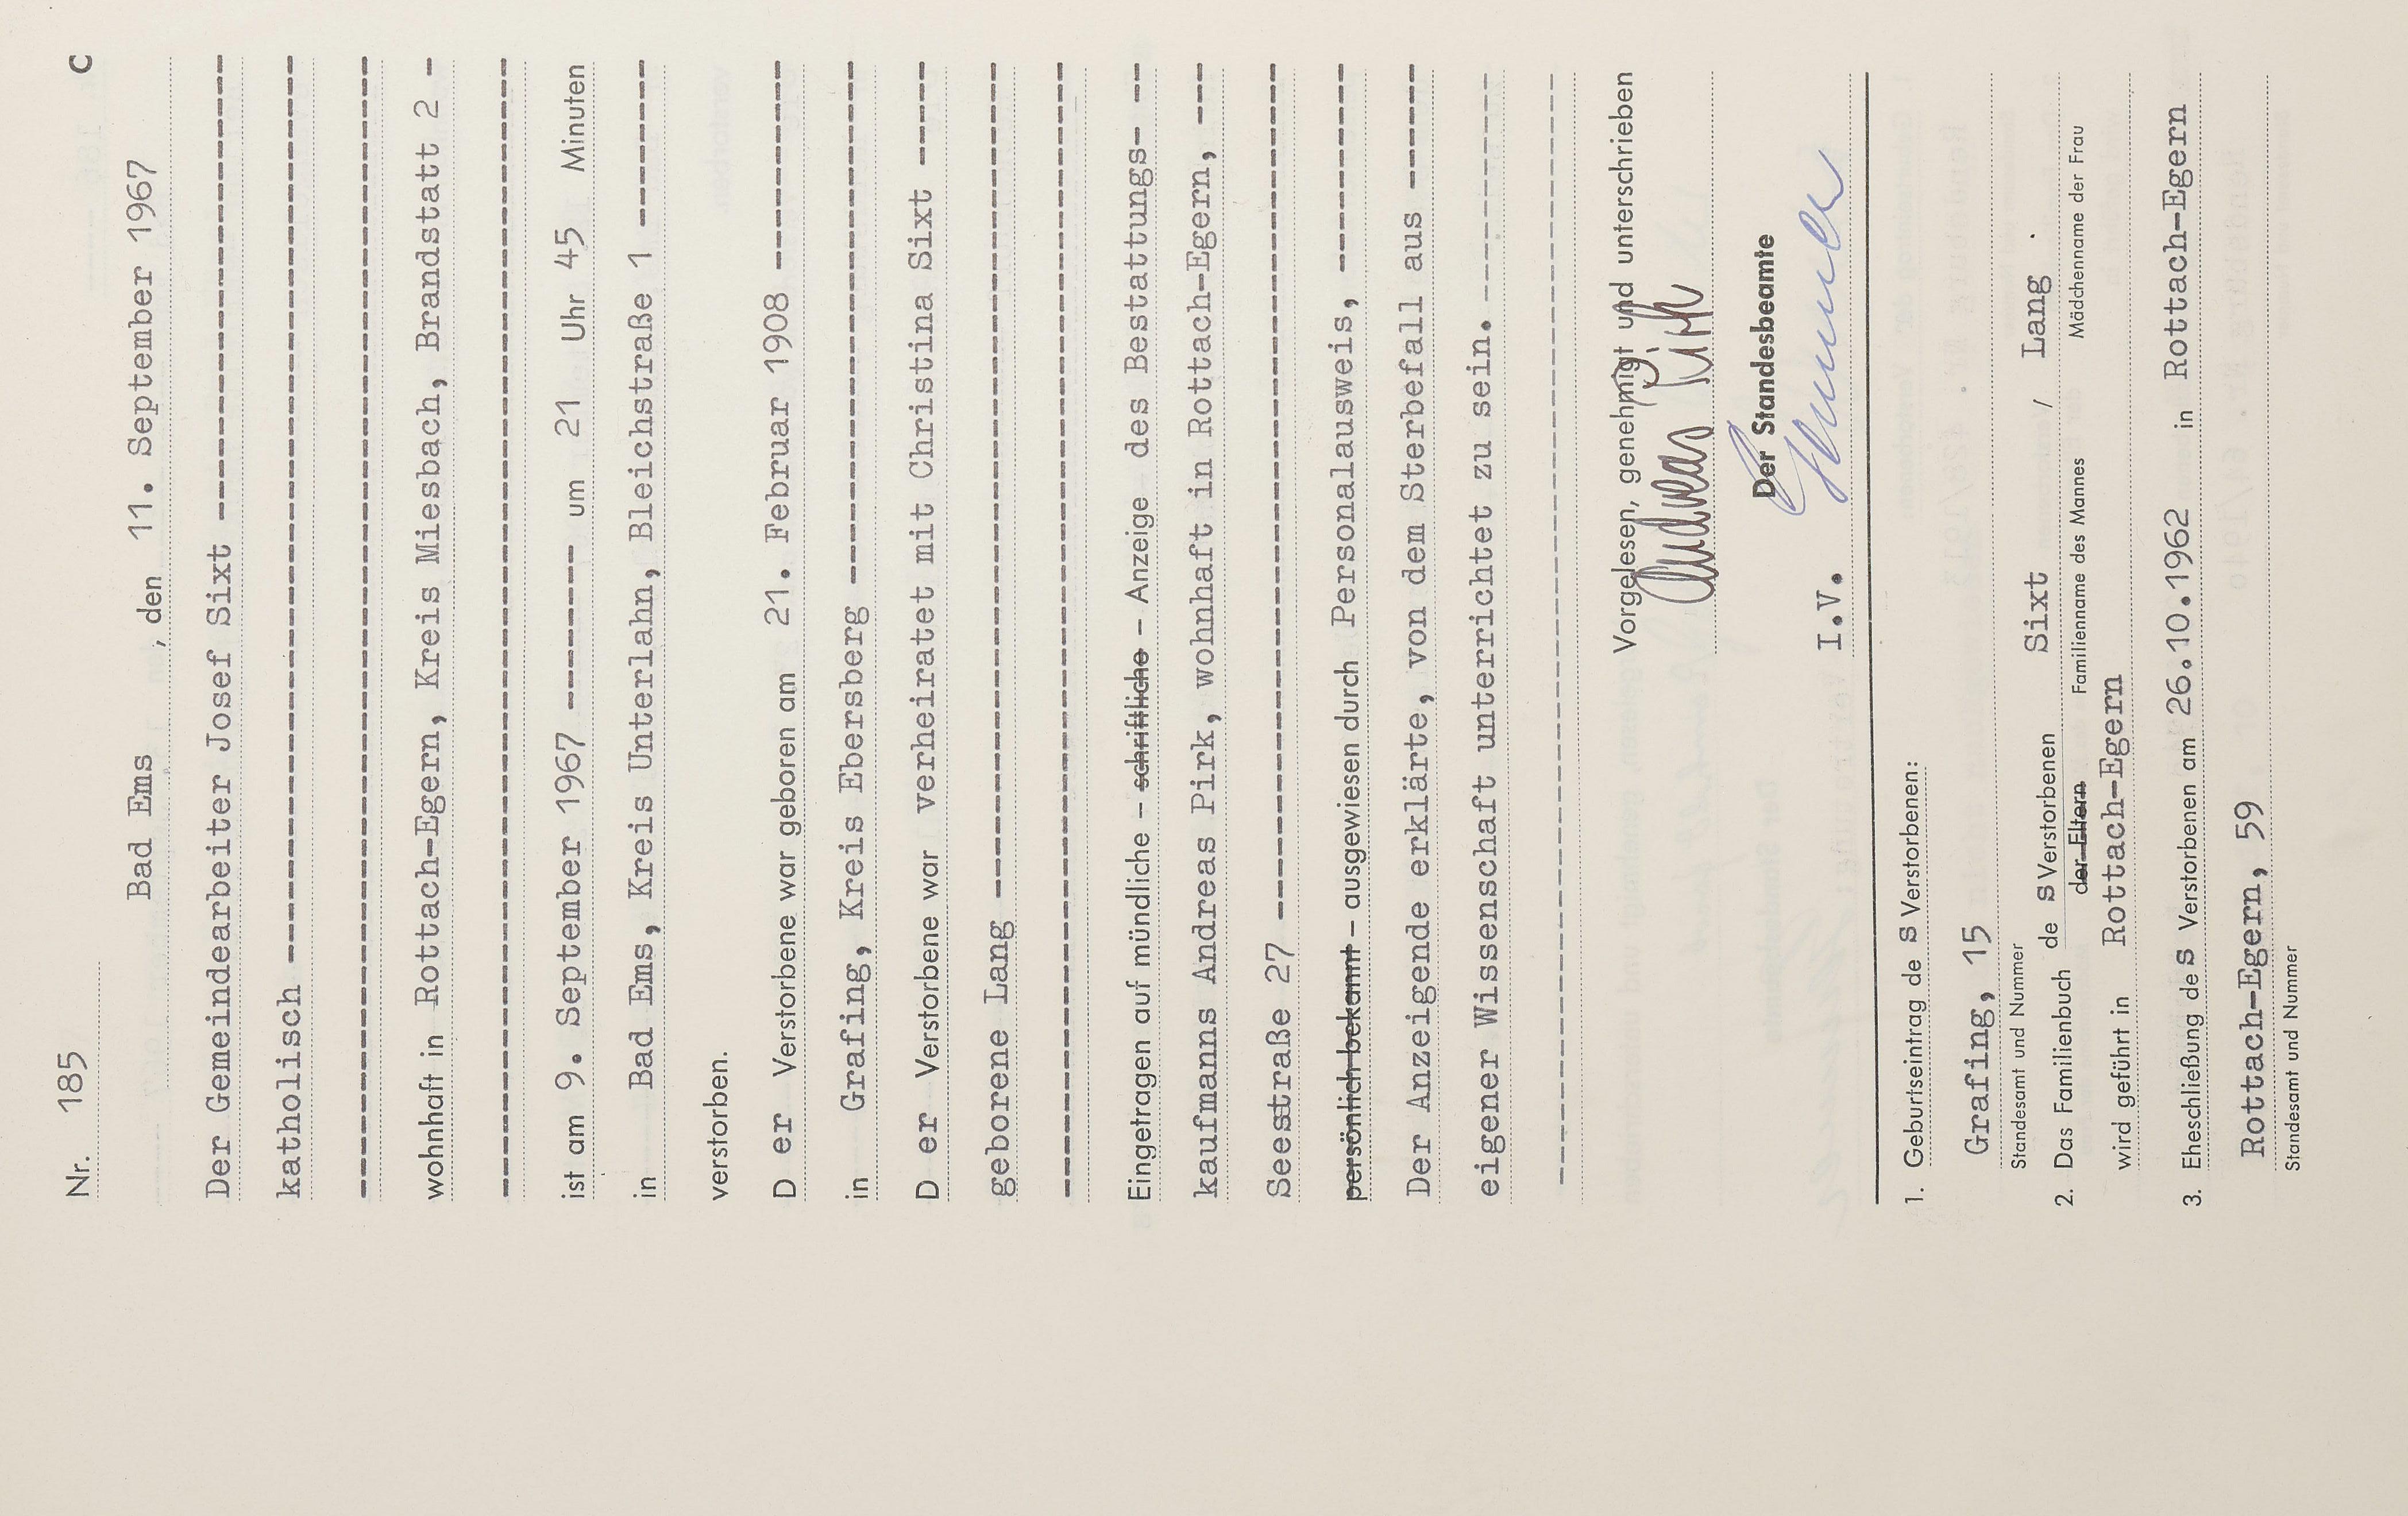 Nr. 185 C
Bad Ems, den 11. September 1967
Der Gemeindearbeiter Josef Sixt ----------
katholisch ----------
----------
wohnhaft in Rottach-Egern, Kreis Miesbach, Brandstatt 2 -
----------
ist am 9. September 1967 -------- um 21 Uhr 45 Minuten
in Bad Ems, Kreis Unterlahn, Bleichstraße 1 --------
verstorben.
D er Verstorbene war geboren am 21. Februar 1908 ----------
in Grafing, Kreis Ebersberg ----------
D er Verstorbene war verheiratet mit Christina Sixt -----
geborene Lang ----------
----------
Eingetragen auf mündliche – schriftliche – Anzeige des Bestattungs- --
kaufmanns Andreas Pirk, wohnhaft in Rottach-Egern, ---
Seestraße 27 ----------
persönlich bekannt – ausgewiesen durch Personalausweis, ----------
Der Anzeigende erklärte, von dem Sterbefall aus ------
eigener Wissenschaft unterrichtet zu sein. ----------
----------
Vorgelesen, genehmigt und unterschrieben
Andreas Pirk
Der Standesbeamte
I.V.
1. Geburtseintrag de s Verstorbenen:
Grafing, 15
Standesamt und Nummer
2. Das Familienbuch de s Verstorbenen Sixt / Lang
der Eltern Familienname des Mannes Mädchenname der Frau
wird geführt in Rottach-Egern
3. Eheschließung de s Verstorbenen am 26.10.1962 in Rottach-Egern
Rottach-Egern, 59
Standesamt und Nummer